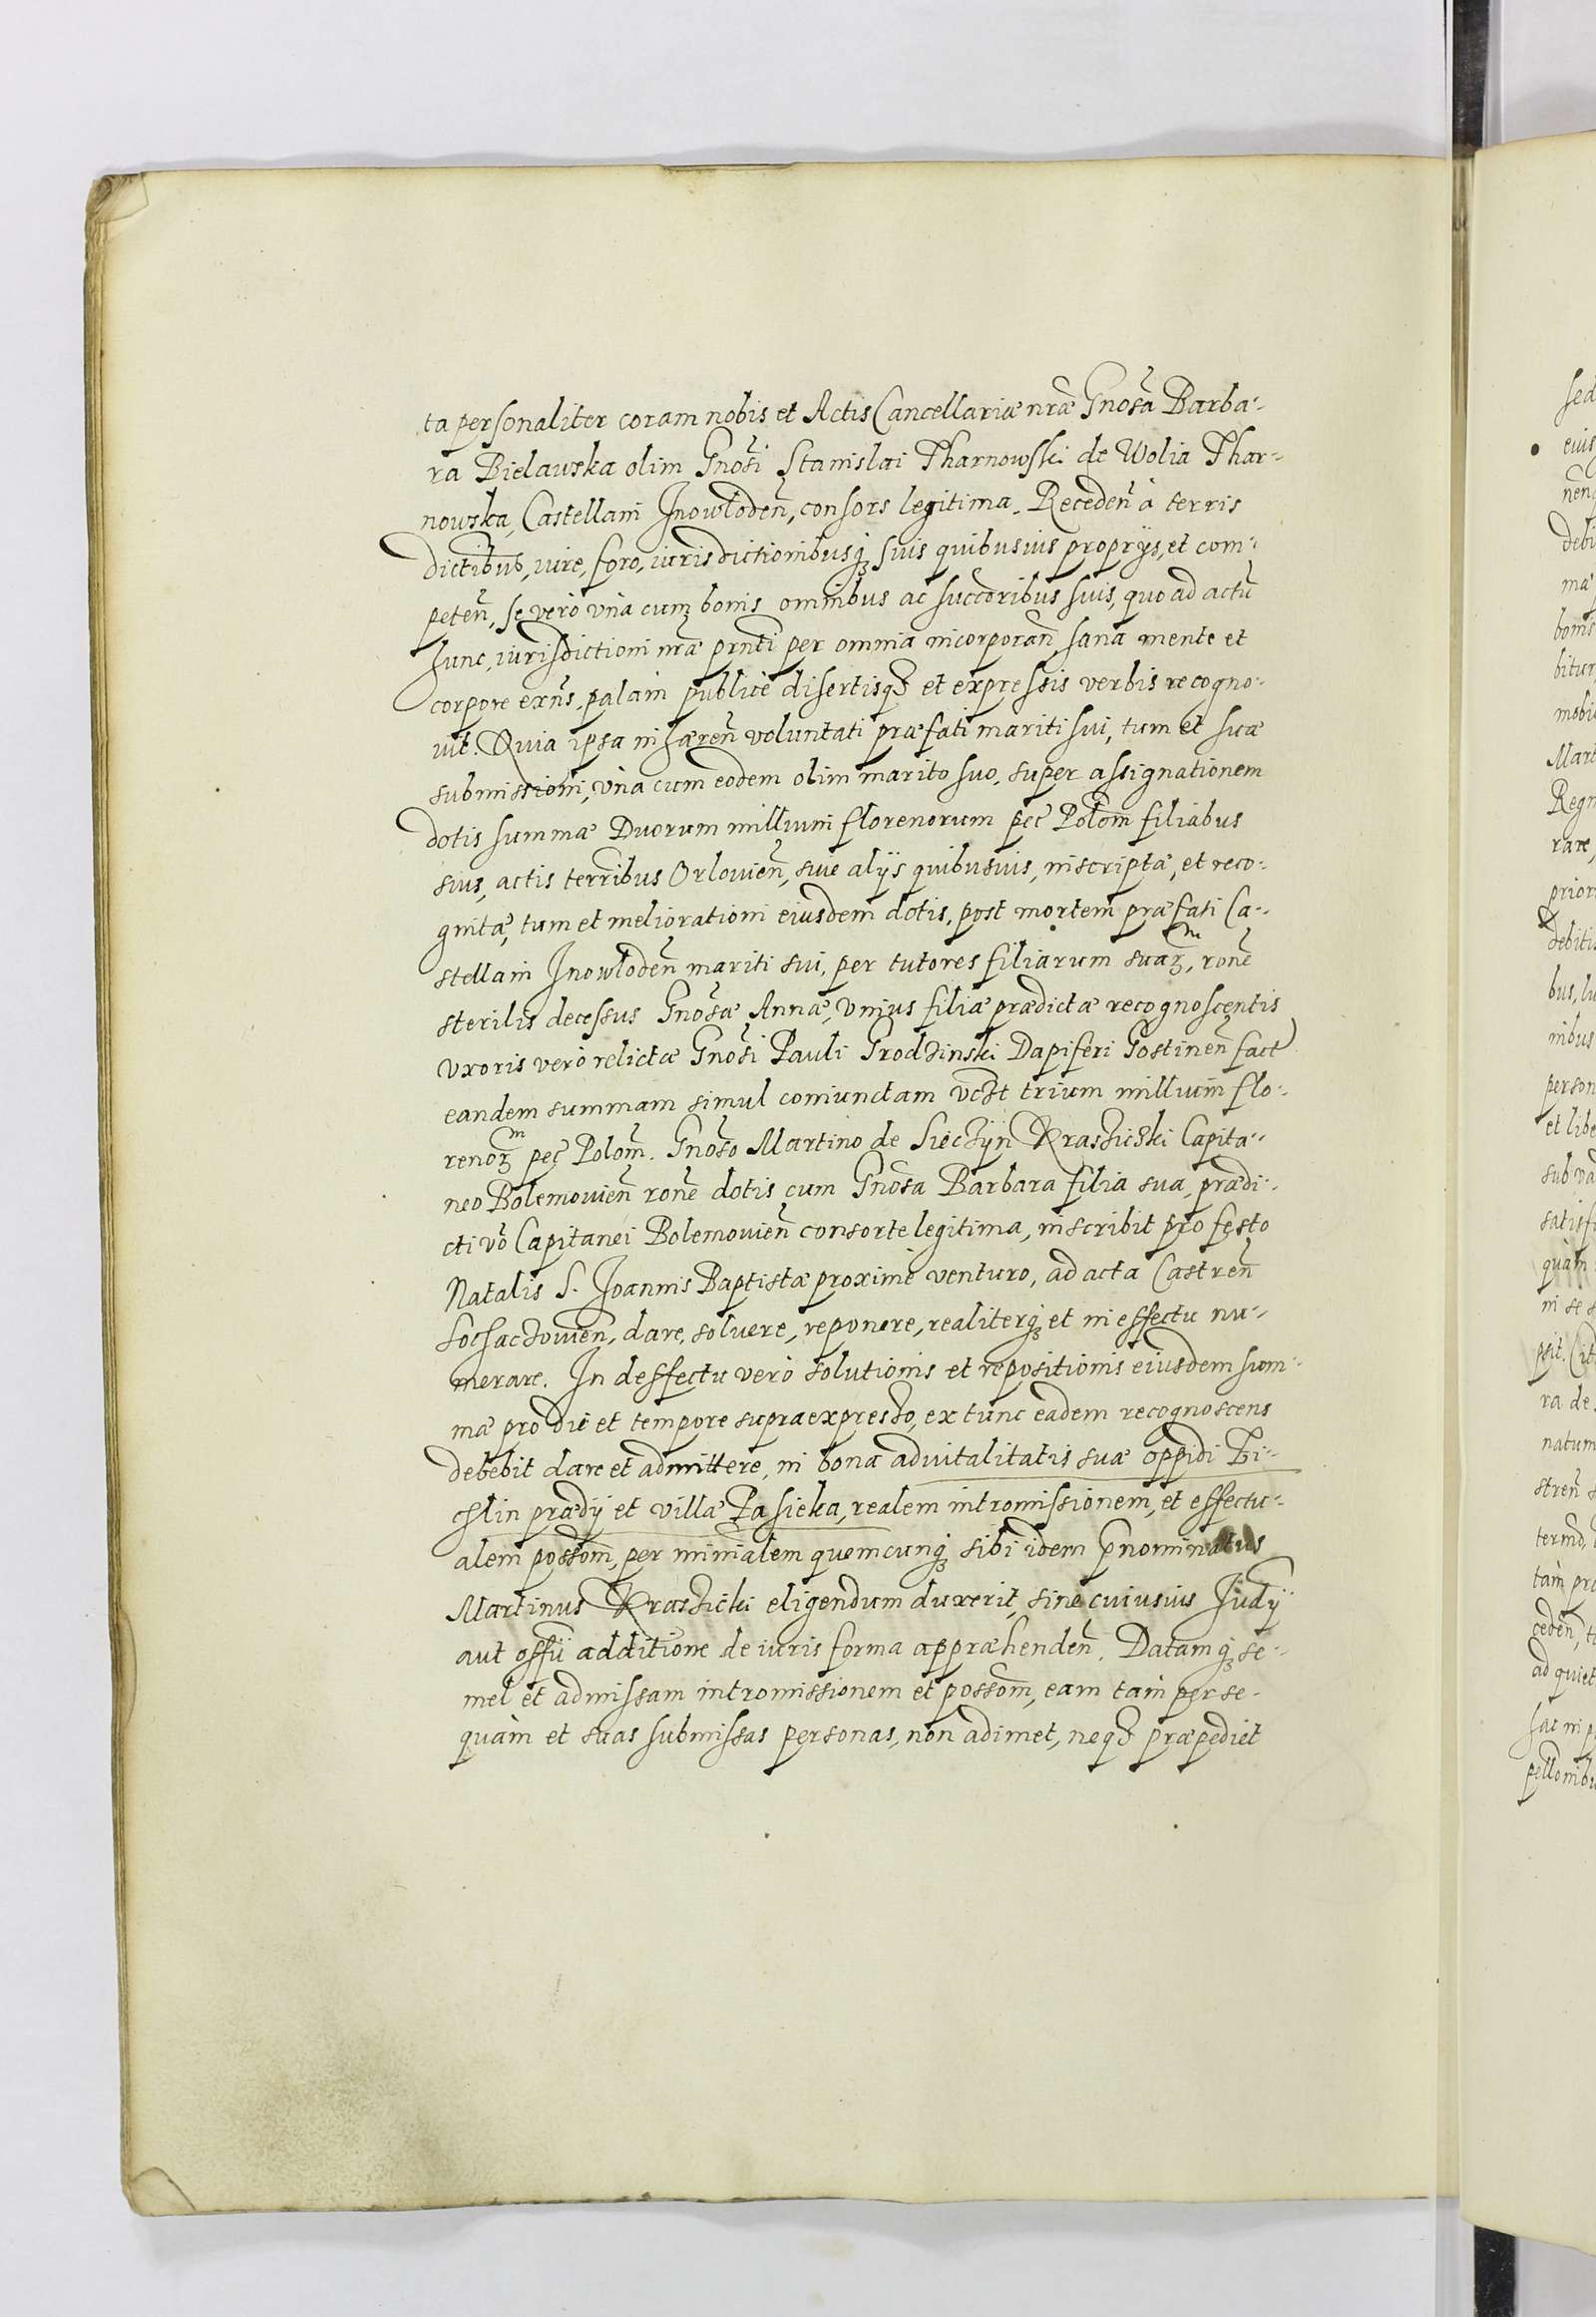 ta personaliter coram nobis et Actis Cancellariæ nr̃æ Gnosã Barba-
ra Bielawska olim Gnosi Stanislai Tharnowski de Wolia Thar-
nowska, Castellani Jnowłodeñ, consors legitima. Recedeñ à terris
dictibus, iure, foro, iurisdictionibusq́ suis quibusuis proprijs, et com-
peteñ, se verò vnà cum bonis omnibus ac succoribus suis, quo ad actũ
hunc, iurisdictioni nr̃æ prñti per omnia incorporañ, sana mente et
corpore exñs, palàm publicè disertisq3 et expressis verbis recogno-
uit. Quia ipsa inhæreñ voluntati præfati mariti sui, tum et suæ
submissioni, vnà cum eodem olim marito suo, super assignationem
dotis summæ Duorum millium florenorum pec̃ Polom̃ filiabus
suis, actis terribus Orlouieñ, siue alijs quibusuis, inscriptæ, et reco-
gnitæ, tum et meliorationi eiusdem dotis, post mortem præfati Ca-
stellani Jnowlodeñ mariti sui, per tutores filiarum suaꝝ, roñe
sterilis decessus Gnosæ Annæ, vnius filiæ prædictæ recognoscentis
vxoris verò relictæ Gnosi Pauli Grodzinski Dapiferi Gostineñ fact
eandem summam simul coniunctam vdzt trium millium flo-
renoꝝ pec̃ Polom̃. Gnoso Martino de Siéczÿn Kraszicki Capita-
neo Bolemouieñ roñe dotis cum Gnosa Barbara filia sua, prædi-
cti vo᷃ Capitanei Bolemouieñ consorte legitima, inscribit pro festo
Natalis S. Joannis Baptistæ proximè venturo, ad acta Castreñ
Sochaczouieñ, dare, soluere, reponere, realiterq́ et in effectu nu-
merare. In deffectu verò solutionis et repositionis eiusdem sum-
mæ pro die et tempore supraexpresso, ex tunc eadem recognoscens
debebit dare et admittere, in bona aduitalitatis suæ oppidi Ki-
chlin prædij et villæ Pasieka, realem intromissionem, et effectu-
alem possom̃, per minĩalem quemcunq́ sibi idem p̃nominatus
Martinus Kraszicki eligendum duxerit, sine cuiusuis Judÿ
aut offii additione de iuris forma appræhendeñ. Datamq́ se-
mel et admissam intromissionem et possom̃, eam tàm per se-
quàm et suas submissas personas, non adimet, neq3 præpediet